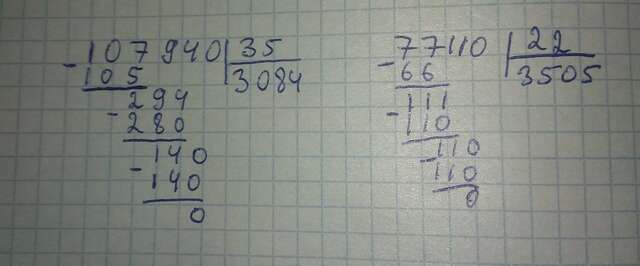 -107940|35
105 3084
294
-280
-140
140
0
-77110|22
66 3505
111
-110
-110
110
0